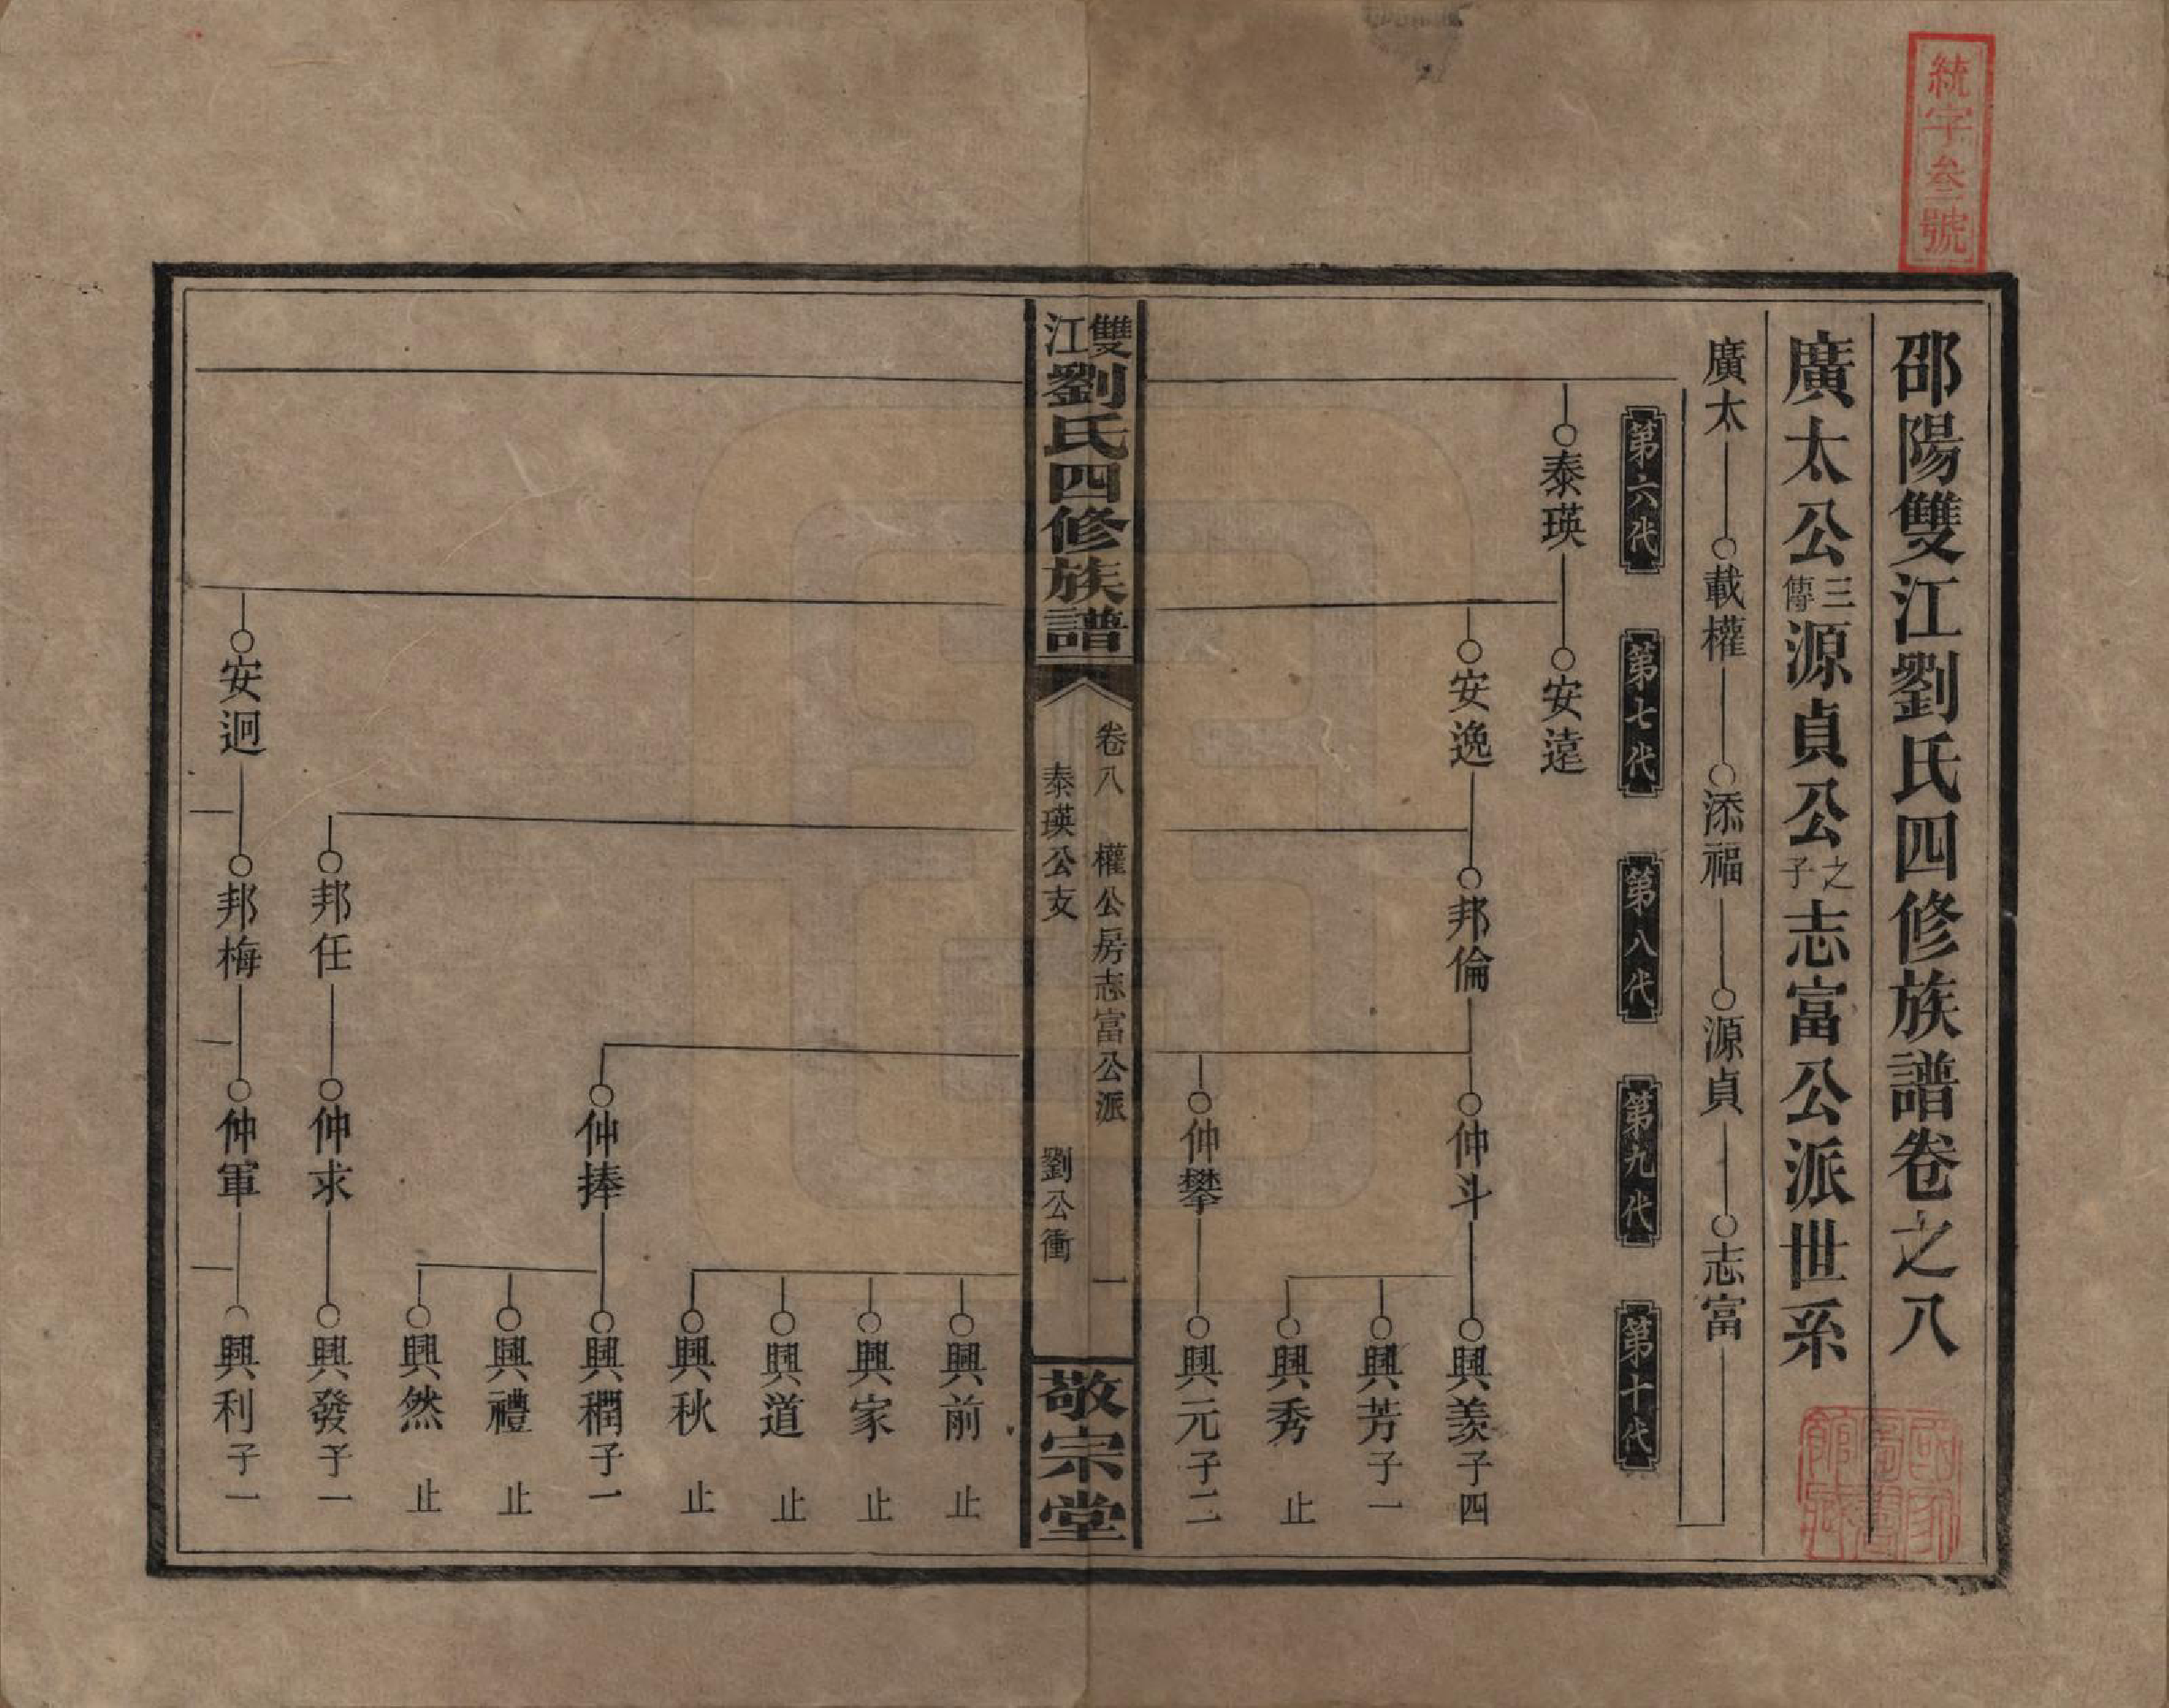 統字叁號
邵陽雙江劉氏四修族譜卷之八
廣太公三傳源貞公之子志富公派世系
廣太 載權 添福 源貞 志富
第六代 第七代 第八代 第九代 第十代
泰瑛 安遠
安逸 邦倫 仲斗 興羨子四
興芳子一
興秀 止
仲攀 興元子二
雙江劉氏四修族譜
卷八 權公房志富公派 一
泰瑛公支 劉公衝
敬宗堂
興前 止
興家 止
興道 止
興秋 止
仲捧 興稠子一
興禮 止
興然 止
邦任 仲求 興發子一
安迴 邦梅 仲軍 興利子一